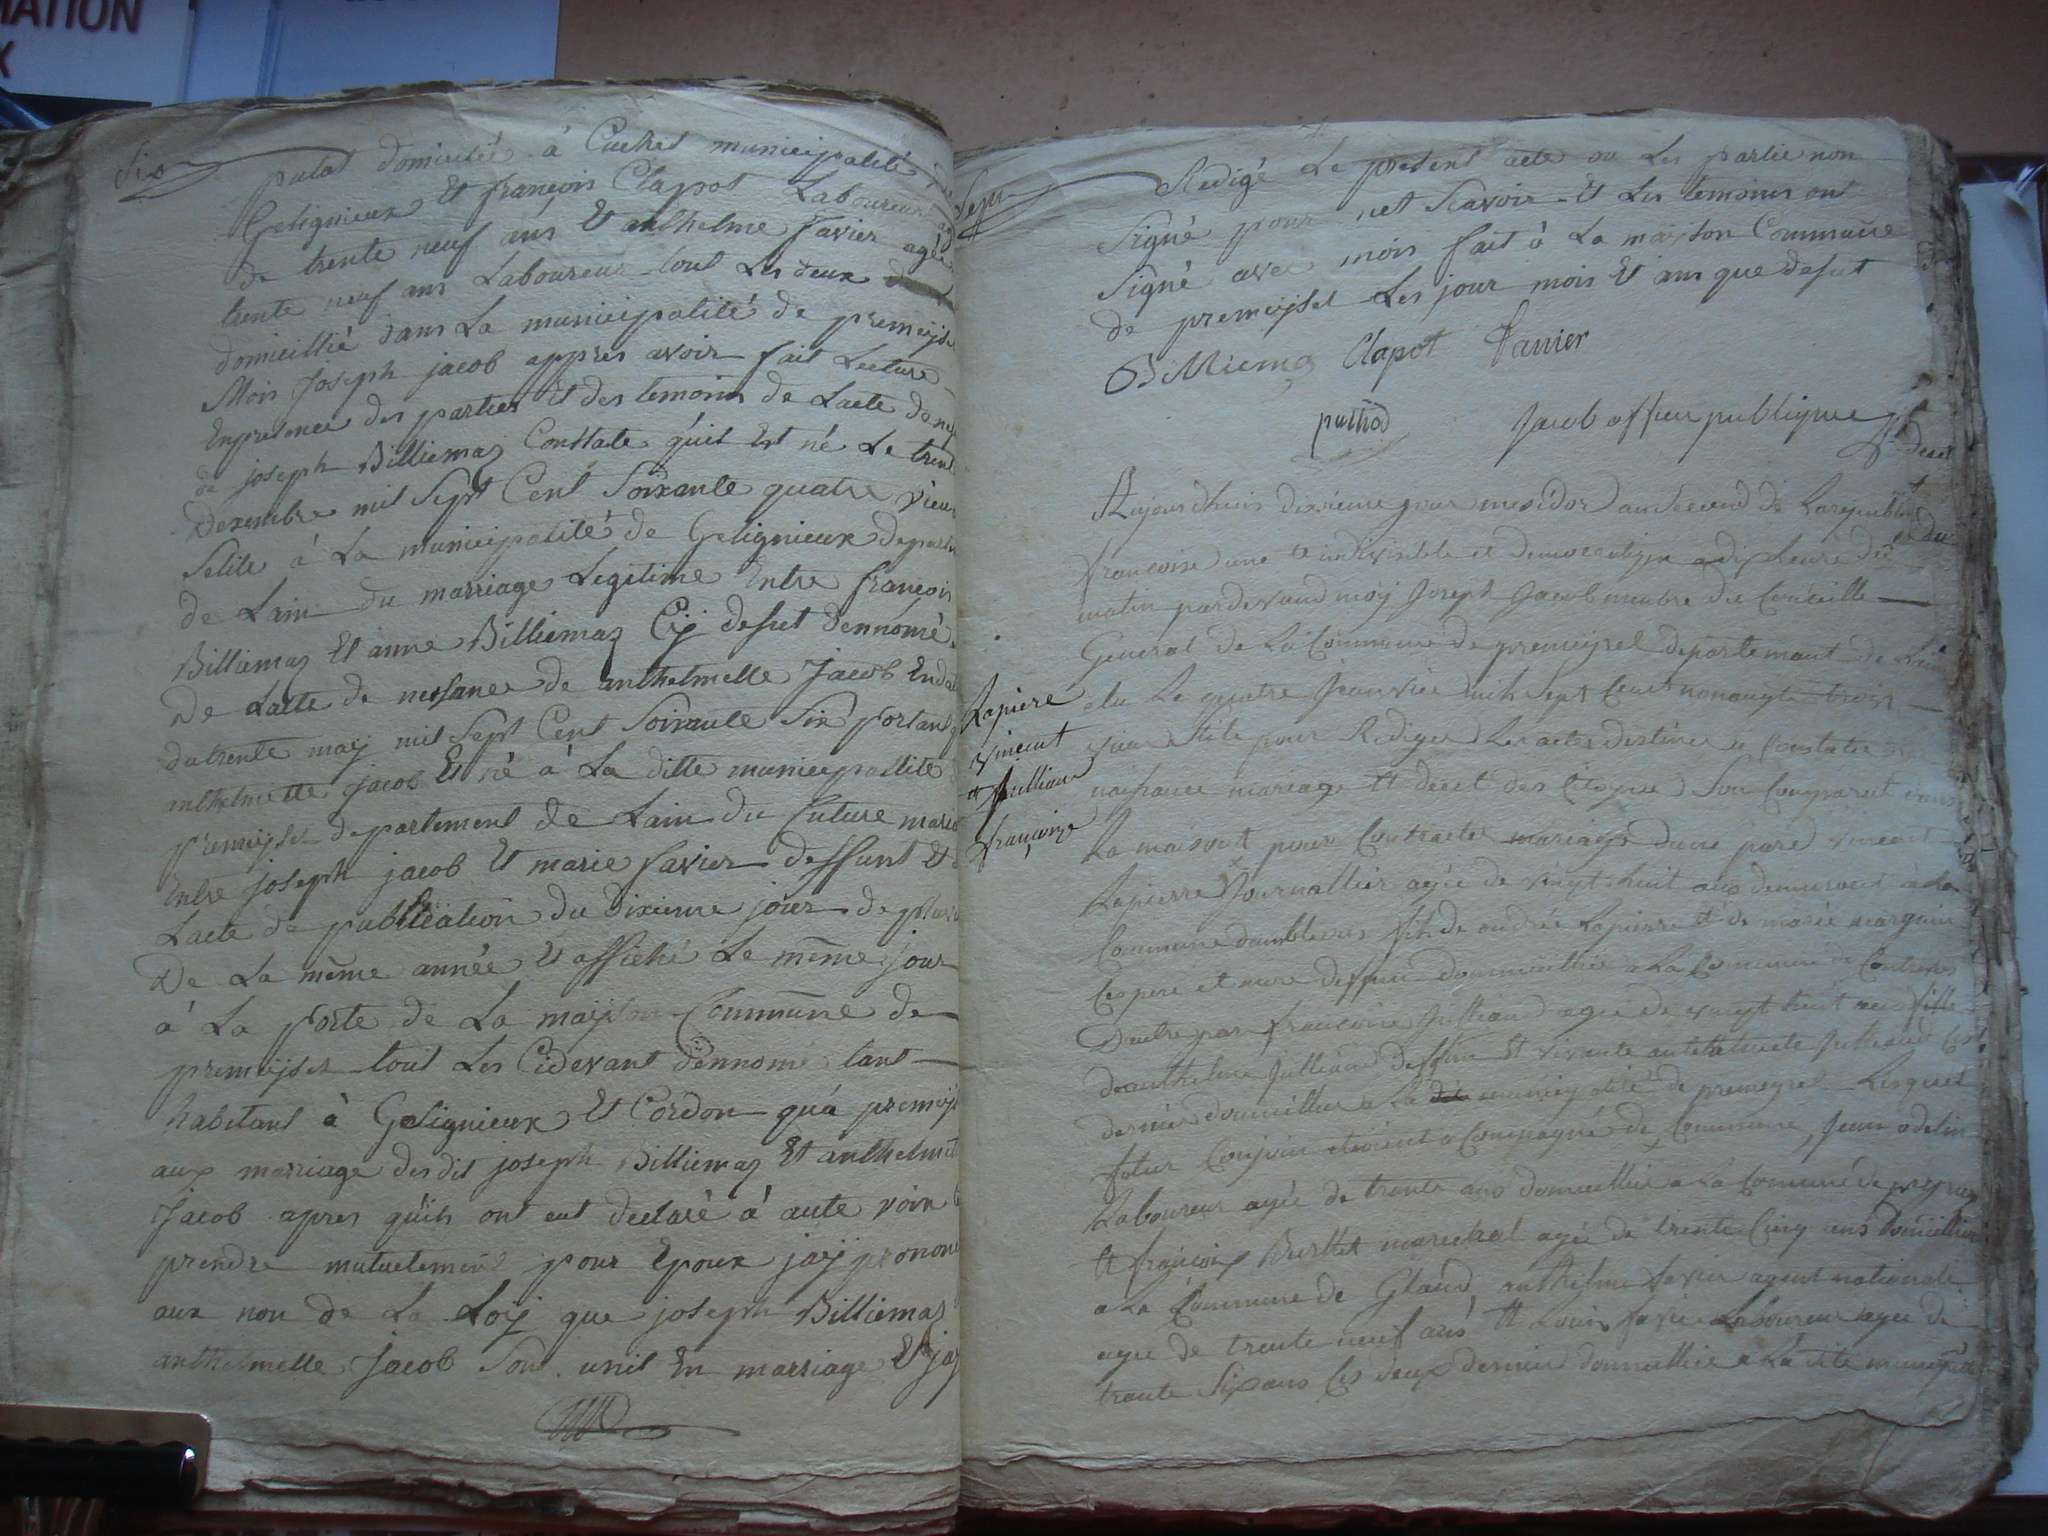 MATION
X
Six
putot domicilié à Cuchet municipalité
Gelignieux Et françois Clapot Laboureur
de trente neuf ans Et anthelme favier agé
trente neuf ans Laboureur tout Les deux
domicillié dans La municipalité de premeijsel
Mois Joseph jacob appres avoir fait Lecture
Enpresence des parties Et des temoins de Lacte de
de joseph Billiemaz Constate quil Est né Le trent
dexembre mil Sept Cent Soixante quatre vieux
Stile à La municipalité de Gelignieux depart
de Lain du marriage Legitime Entre françois
Billiemaz Et anne Billiemaz Cij desut dennomé
De Lacte de nessance de anthelmelle Jacob En
du trente maij mil Sept Cent Soixante Six portant
anthelmette jacob Et né à La ditte municipallité
premeijsel departement de Lain du Cuture
Entre joseph jacob Et marie favier deffunt Et
Lacte de publication du dixieme jour de
De La même année Et affiché Le même jour
à La porte de La maijson Commune de
premeijsel tout Les Cidevant dennomé tant
habitant à Gelignieux Et Cordon qua premeij
aux marriage desdit joseph Billiemaz Et anthelmet
Jacob apres quih ont eut declaré à aute voix
prendre mutuelement pour Epoux jaij prononc
aux non de La Loij que joseph Billiemaz
anthelmelle Jacob Sont unit En marriage Et jaij
Sept
Redigé Le present acte ou Les partie non
Signé pour net Scavoir Et Les temoins ont
Signé avec mois fait à La maijson Commune
de premeijsel Les jour mois Et ans que desut
Billiemaz Clapot favier
puthod Jacob officier publique
decet
Aujourdhuis dixieme jour mesidor an Second de Larepublique
francoise une et indivisible et democratique a dix heure du
matin pardevand moij Joseph Jacob menbre du Conseille
General de La Commune de premeijsel departemant de Lain
elu Le quatre Jeanvier mil Sept Cent nonangte trois
vieux Stile pour Rediger Les actes destinés a Constater
naissance mariage Et decet des Citoyens Son Comparut dans
La maison pour Contracter mariage dune pare vincent
Lapierre Journallier agée de vingt huit ans demeurant a La
Commune dambleons fils de andrée Lapierre Et de marie
Ces pere et mere deffunt dommicillié a La Commune de
Dautre par francoise Jullian agée de vingt huit ans fille
de anthelme Jullian deffun Et vivante anthelmete
dernier domicillier a La municipalité de premeysel Lesquel
futur Conjoin etoient a Compagné de Commune, Jean
Laboureur agée de trente ans domicillié a La Comune de
Et françois Berthet marechal agée de trente Cinq ans domicillié
a La Commune de Gland, anthelme favier agent nationale
agée de trente neuf ans Et Louis favier Laboureur agée de
trante Six ans Ces deux dernier domicillié a La dite municipalité
Lapiere
vincent
et Jullian
francoise